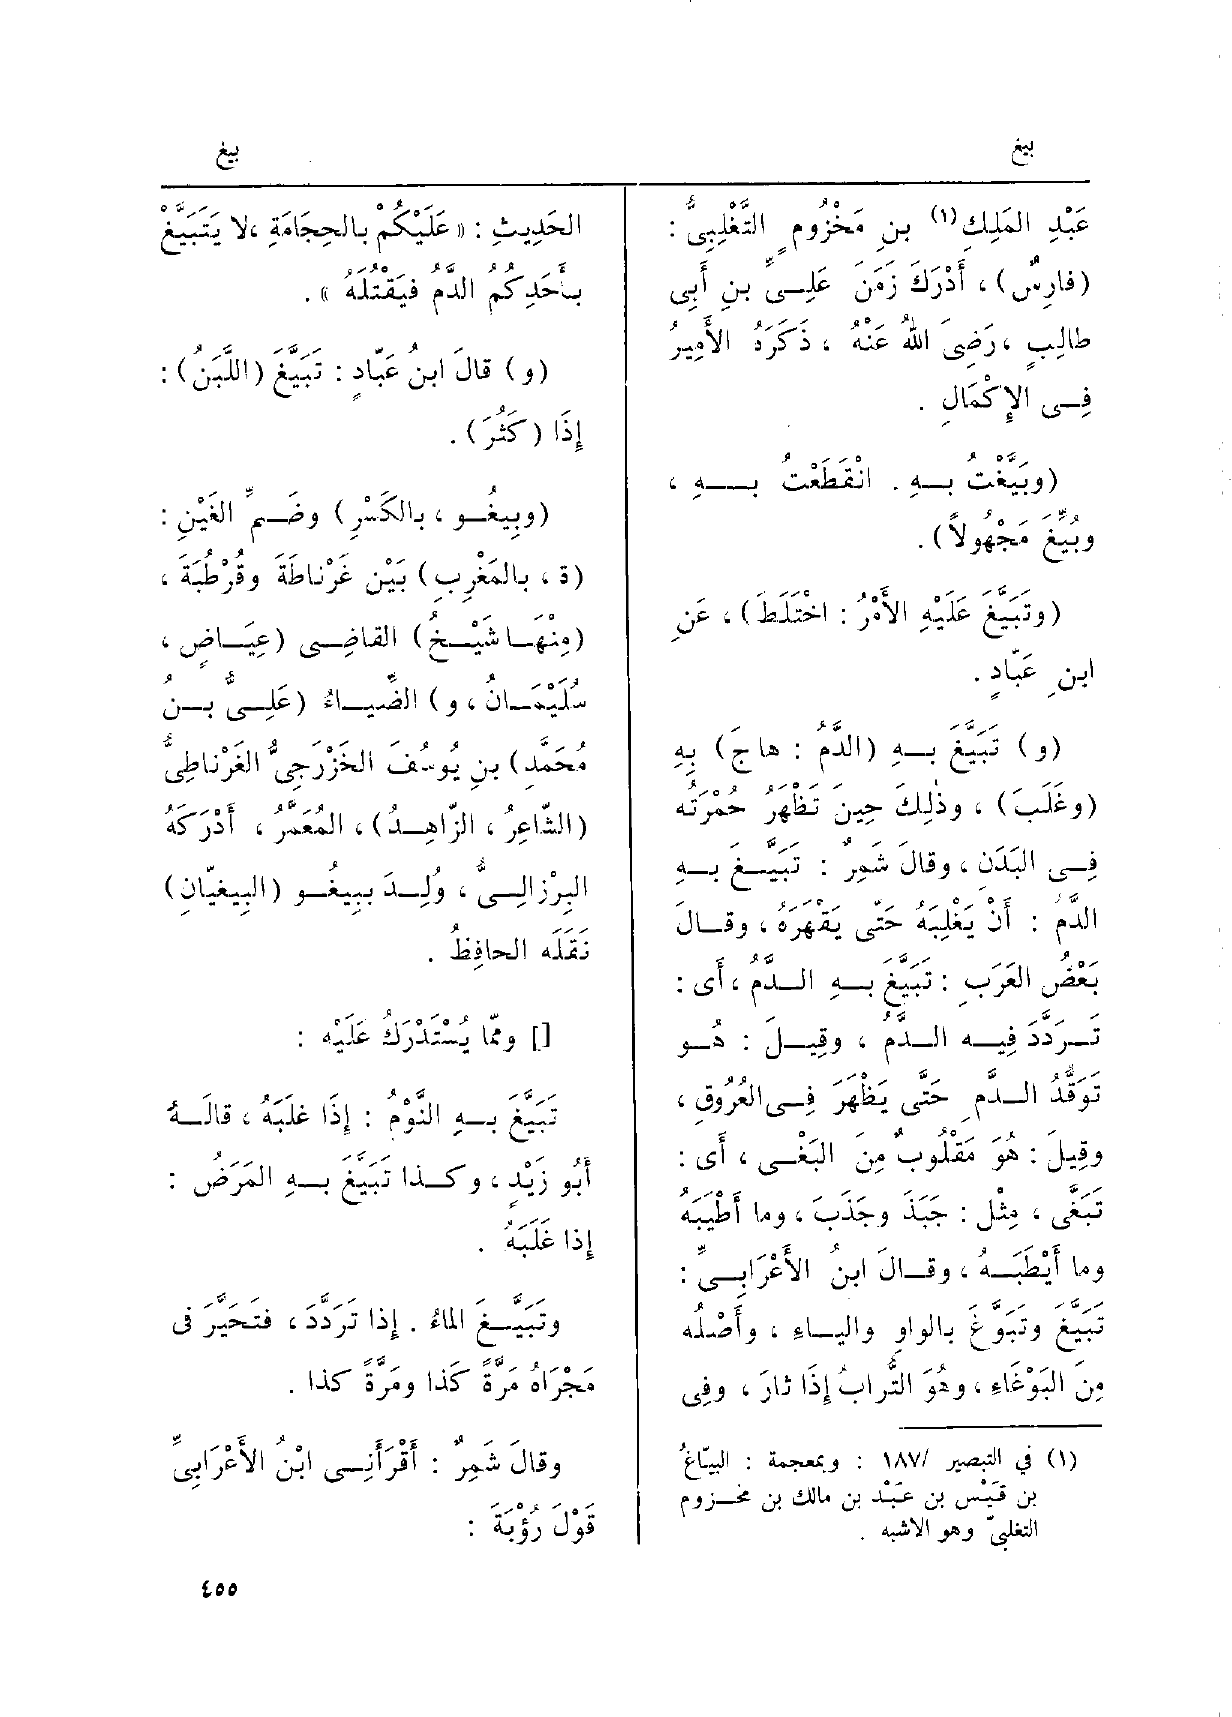 بيغ
بيغ
عَبْدِ المَلِكِ(١) بنِ مَخْزُومٍ التَّغْلِبِىُّ :
(فارِسٌ) ، أَدْرَكَ زَمَنَ عَلِىِّ بنِ أَبِى
طالِبٍ ، رَضِىَ اللهُ عَنْهُ ، ذَكَرَهُ الأَمِيرُ
فِى الإِكْمَالِ .
(وبَيَّغْتُ بِهِ . انْقَطَعْتُ بِهِ ،
وبُيِّغَ مَجْهُولاً) .
(وتَبَيَّغَ عَلَيْهِ الأَمْرُ : اخْتَلَطَ) ، عَنِ
ابنِ عَبّادٍ .
(و) تَبَيَّغَ بِهِ (الدَّمُ : هاجَ) بِهِ
(وغَلَبَ) ، وذٰلِكَ حِينَ تَظْهَرُ حُمْرَتُه
فِى البَدَنِ ، وقالَ شَمِرٌ : تَبَيَّغَ بِهِ
الدَّمُ : أَنْ يَغْلِبَهُ حَتّى يَقْهَرَهُ ، وقالَ
بَعْضُ العَرَبِ : تَبَيَّغَ بِهِ الدَّمُ ، أَى :
تَرَدَّدَ فِيه الدَّمُ ، وقِيلَ : هُو
تَوَقُّدُ الدَّمِ حَتَّى يَظْهَرَ فِى العُرُوقِ ،
وقِيلَ : هُوَ مَقْلُوبٌ مِنَ البَغْىِ ، أَى :
تَبَغَّى ، مِثْل : جَبَذَ وجَذَبَ ، وما أَطْيَبَهُ
وما أَيْطَبَهُ ، وقالَ ابنُ الأَعْرَابِىِّ :
تَبَيَّغَ وتَبَوَّغَ بالواوِ والياءِ ، وأَصْلُه
مِنَ البَوْغَاءِ ، وهُوَ التُّرابُ إِذَا ثارَ ، وفِى
(١) في التبصير /١٨٧ : وبمعجمة : البيّاغُ
بن قَيْس بن عَبْد بن مالك بن مخزوم
التغلبىّ وهو الاشبه .
الحَدِيثِ : « عَلَيْكُمْ بالحِجَامَةِ ، لا يَتَبَيَّغْ
بأَحَدِكُمُ الدَّمُ فيَقْتُلَهُ » .
(و) قالَ ابنُ عَبّادٍ : تَبَيَّغَ (اللَّبَنُ) :
إِذَا (كَثُرَ) .
(وبِيغُو ، بالكَسْرِ) وضَمِّ الغَيْنِ :
(ة ، بالمَغْرِبِ) بَيْن غَرْناطَةَ وقُرْطُبَةَ ،
(مِنْهَا شَيْخُ) القاضِى (عِيَاضٍ ،
سُلَيْمَانُ ، و) الضِّيَاءُ (عَلِىُّ بنُ
مُحَمَّدِ) بنِ يُوسُفَ الخَزْرَجِىُّ الغَرْناطِىُّ
(الشّاعِرُ ، الزّاهِدُ) ، المُعَمَّرُ ، أَدْرَكَهُ
البِرْزالِىُّ ، وُلِدَ بِبِيغُو (البِيغيّانِ)
نَقَلَه الحافِظُ .
[] وممّا يُسْتَدْرَكُ عَلَيْه :
تَبَيَّغَ بِهِ النَّوْمُ : إِذَا غَلَبَهُ ، قالَهُ
أَبُو زَيْدٍ ، وكذا تَبَيَّغَ بِهِ المَرَضُ :
إذا غَلَبَهُ .
وتَبَيَّغَ الماءُ . إذا تَرَدَّدَ ، فتَحَيَّرَ فى
مَجْرَاهُ مَرَّةً كَذا ومَرَّةً كذا .
وقالَ شَمِرٌ : أَقْرَأَنِى ابْنُ الأَعْرَابِىِّ
قَوْلَ رُؤْبَةَ :
٤٥٥